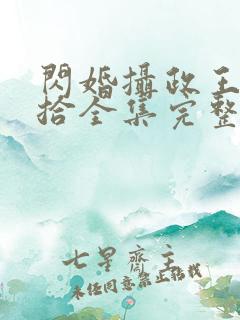 閃婚攝政王
拾全集完整
七星齋主
未经同意禁止转载